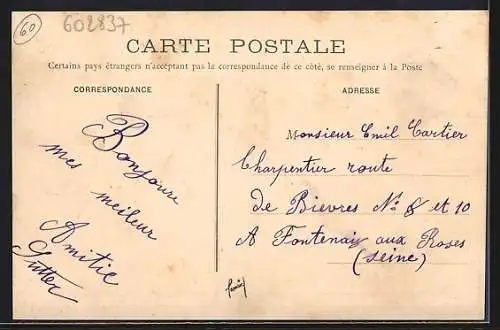 60
602837
CARTE POSTALE
Certains pays étrangers n'acceptant pas la correspondance de ce côté, se renseigner à la Poste
CORRESPONDANCE
Bonjoure
mes meileur
Amitie
Sutter
ADRESSE
Monsieur Emil Cartier
Charpentier route
de Bievres No 8 et 10
A Fontenay aux Roses
(Seine)